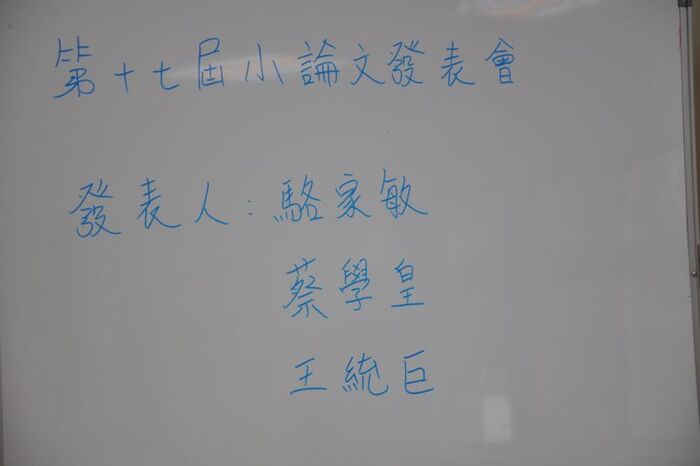 第十七屆小論文發表會
發表人:駱家敏
蔡學皇
王統巨